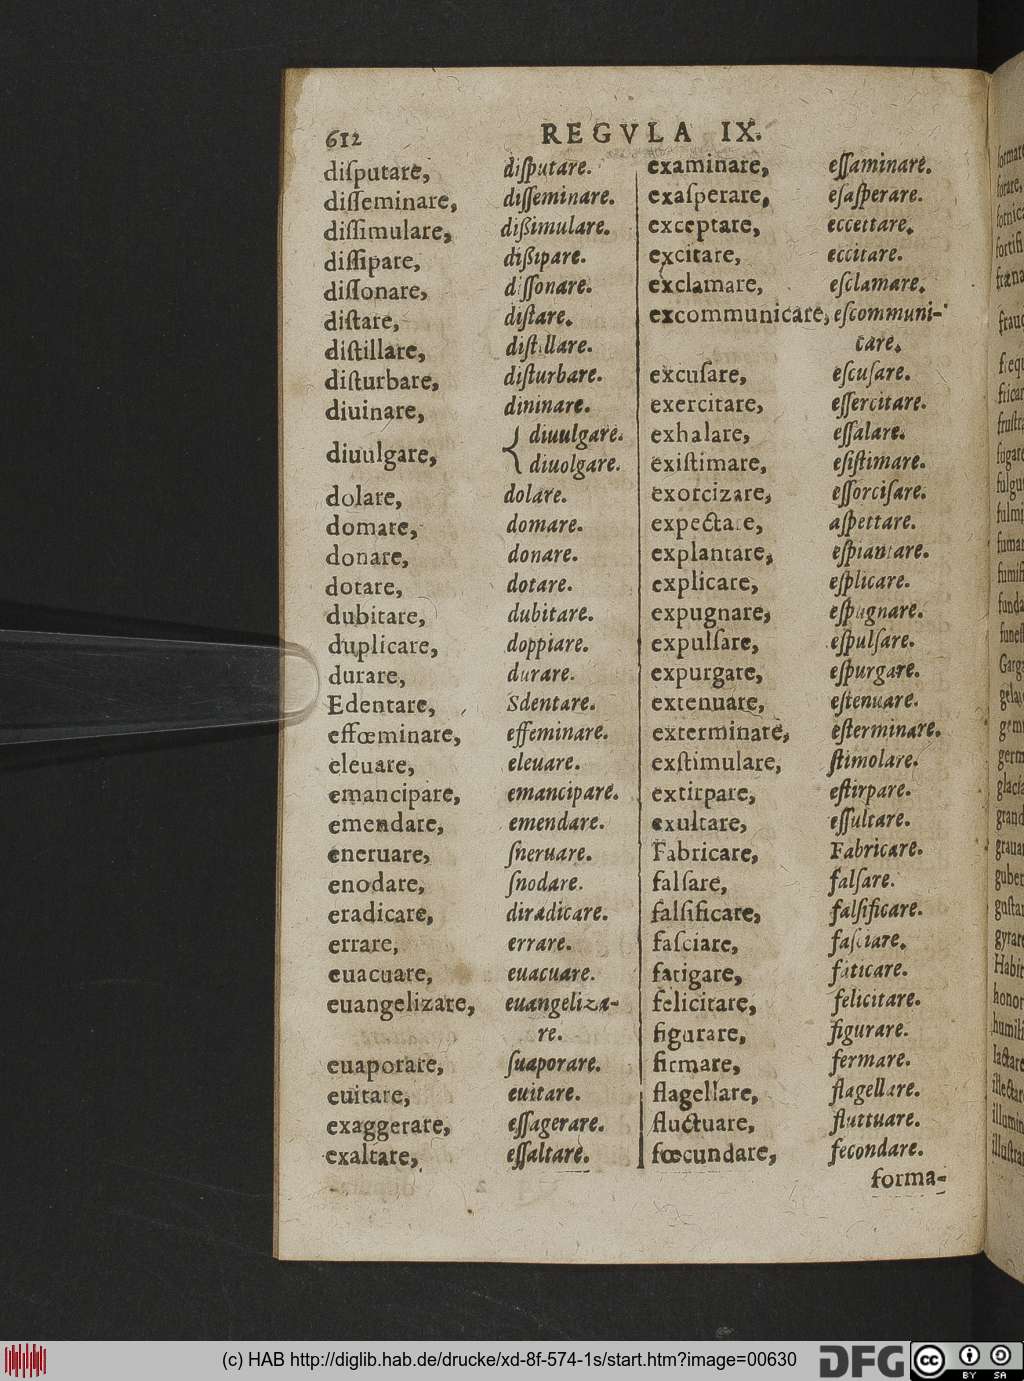 612 REGVLA IX.
diſputare, diſputare.
diſſeminare, diſſeminare.
diſſimulare, dißimulare.
diſſipare, dißipare.
diſſonare, diſſonare.
diſtare, diſtare.
diſtillare, diſtillare.
diſturbare, diſturbare.
diuinare, dininare.
diuulgare, { diuulgare.
diuolgare.
dolare, dolare.
domare, domare.
donare, donare.
dotare, dotare.
dubitare, dubitare.
duplicare, doppiare.
durare, durare.
Edentare, Sdentare.
effœminare, effeminare.
eleuare, eleuare.
emancipare, emancipare.
emendare, emendare.
eneruare, ſneruare.
enodare, ſnodare.
eradicare, diradicare.
errare, errare.
euacuare, euacuare.
euangelizare, euangeliza-
re.
euaporare, ſuaporare.
euitare, euitare.
exaggerare, eſſagerare.
exaltare, eſſaltare.
examinare, eſſaminare.
exaſperare, eſaſperare.
exceptare, eccettare.
excitare, eccitare.
exclamare, eſclamare.
excommunicare, eſcommuni-
care.
excuſare, eſcuſare.
exercitare, eſſercitare.
exhalare, eſſalare.
exiſtimare, eſiſtimare.
exorcizare, eſſorciſare.
expectare, aſpettare.
explantare, eſpiantare.
explicare, eſplicare.
expugnare, eſpugnare.
expulſare, eſpulſare.
expurgare, eſpurgare.
extenuare, eſtenuare.
exterminare, eſterminare.
exſtimulare, ſtimolare.
extirpare, eſtirpare.
exultare, eſſultare.
Fabricare, Fabricare.
falſare, falſare.
falſificare, falſificare.
faſciare, faſciare.
fatigare, faticare.
felicitare, felicitare.
figurare, figurare.
firmare, fermare.
flagellare, flagellare.
fluctuare, fluttuare.
fœcundare, fecondare.
forma-
(c) HAB http://diglib.hab.de/drucke/xd-8f-574-1s/start.htm?image=00630
DFG
cc BY SA